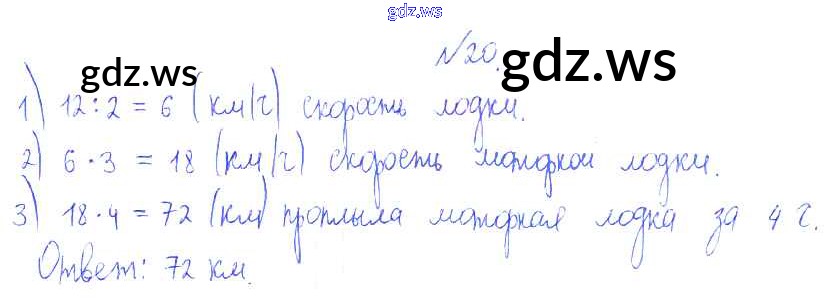 gdz.ws
№20.
gdz.ws gdz.ws
1) 12:2 = 6 (км/ч) скорость лодки.
2) 6·3 = 18 (км/ч) скорость моторной лодки.
3) 18·4 = 72 (км) проплыла моторная лодка за 4 ч.
Ответ: 72 км.